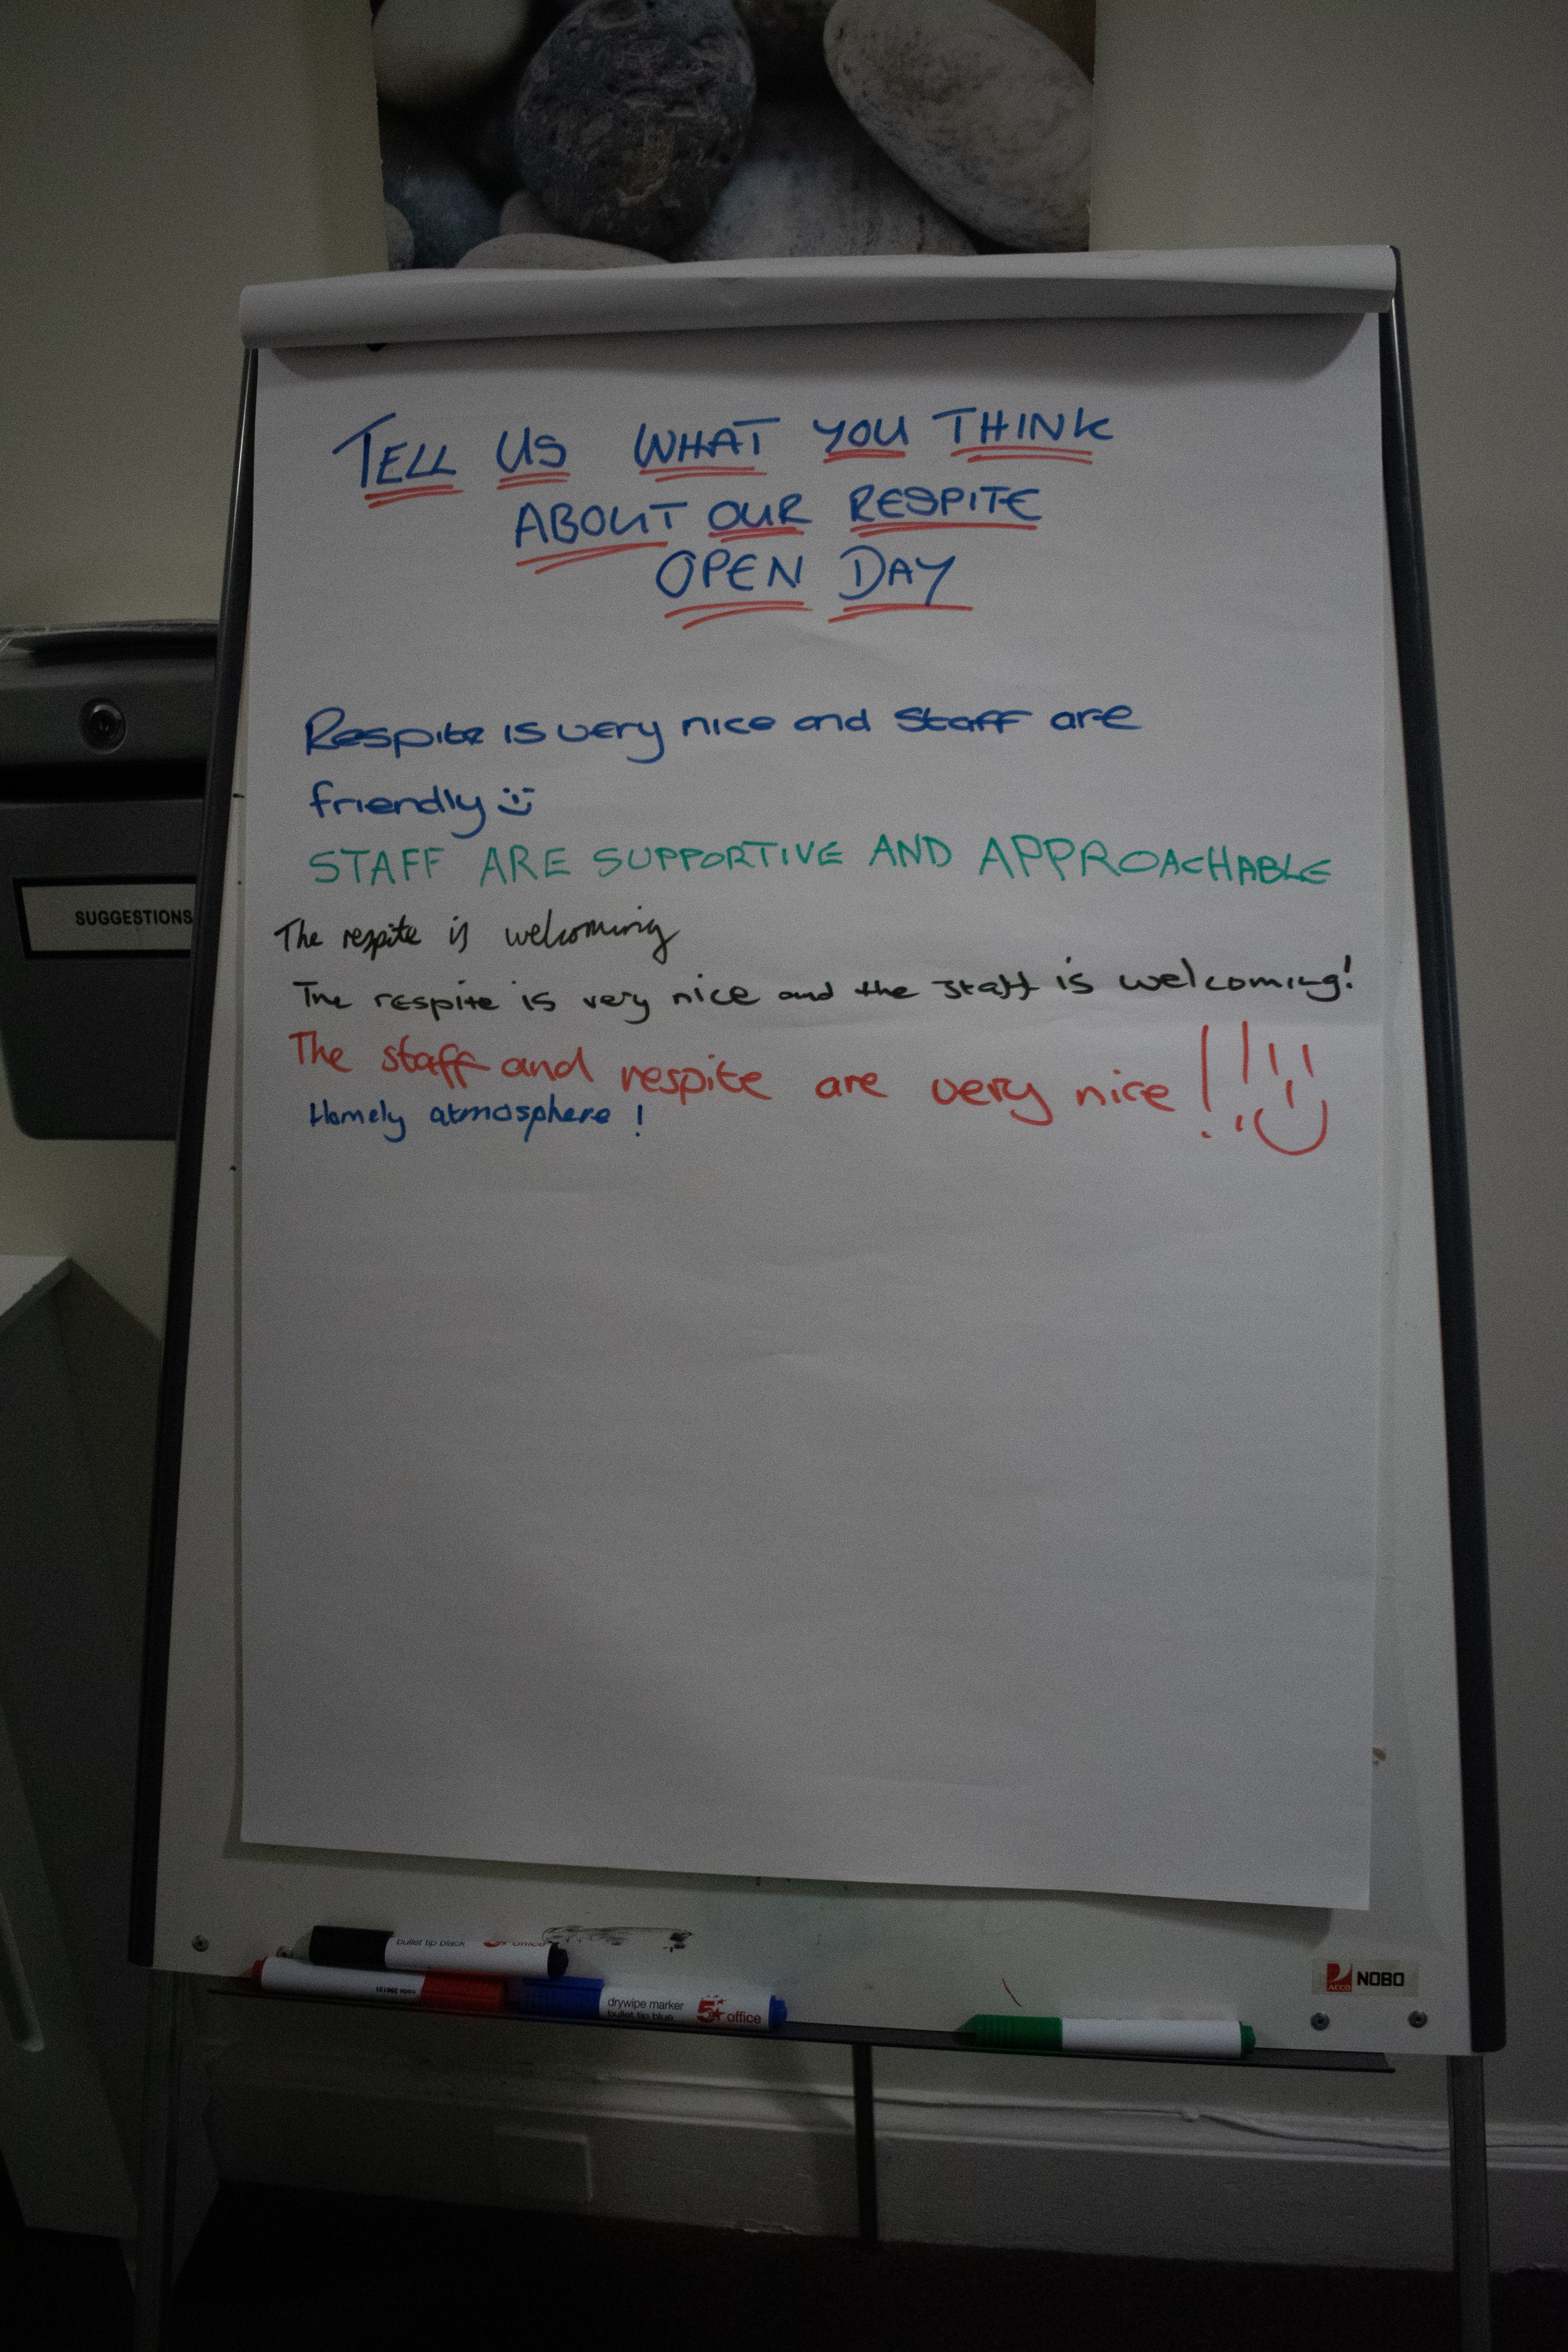 TELL US WHAT YOU THINK
ABOUT OUR RESPITE
OPEN DAY
Respite is very nice and staff are
friendly
STAFF ARE SUPPORTIVE AND APPROACHABLE
The respite is welcoming
The respite is very nice and the staff is welcoming!
The staff and respite are very nice!!
Homely atmosphere!
SUGGESTIONS
bullet tip black
office
drywipe marker
bullet tip blue
5 office
ACCO NOBO